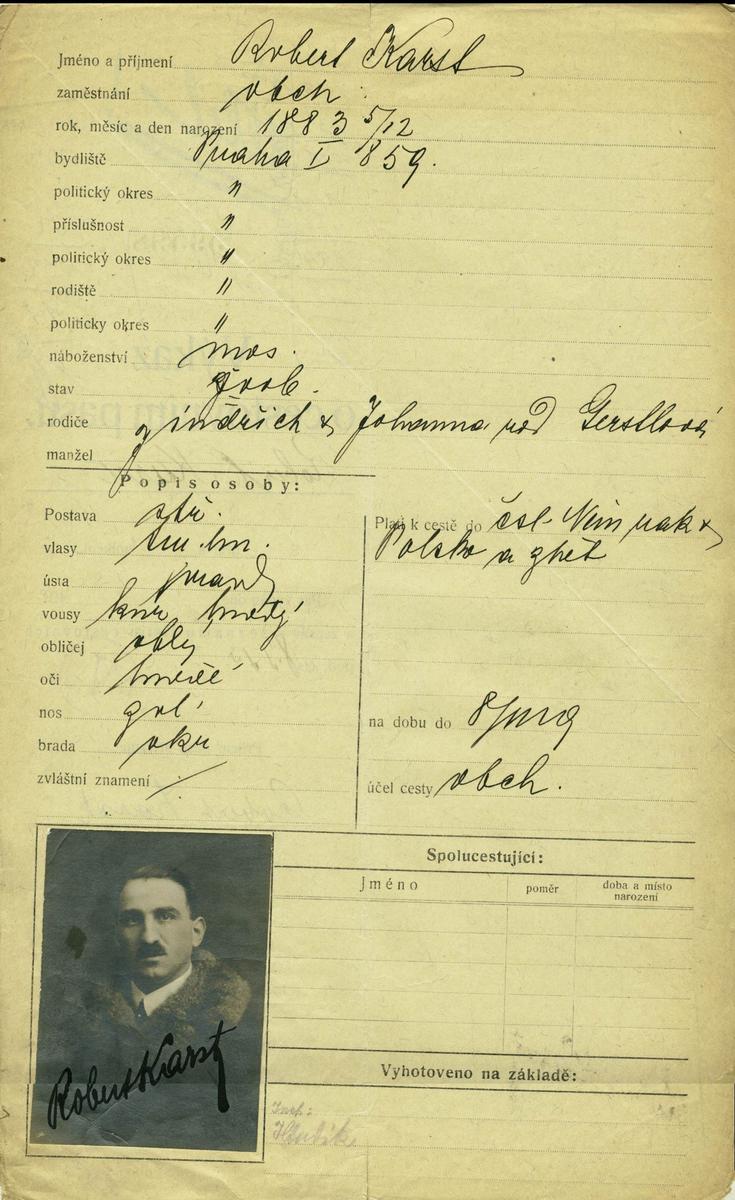 Jméno a příjmení Robert Karst
zaměstnání obch.
rok, měsíc a den narození 1883 5/12
bydliště Praha I 859.
politický okres "
příslušnost "
politický okres "
rodiště "
politicky okres "
náboženství mos.
stav svob.
rodiče Jindřich & Johanna roz Gerstlová
manžel
Popis osoby:
Postava stř.
vlasy tm. hn.
ústa prav
vousy knír hnědý
obličej oblý
oči hnědé
nos
brada okr
zvláštní znamení /
Platí k cestě do čsl. Něm rak &
Polsko a zpět
na dobu do
účel cesty obch.
Spolucestující:
Jméno poměr doba a místo narození
Vyhotoveno na základě:
Robert Karst